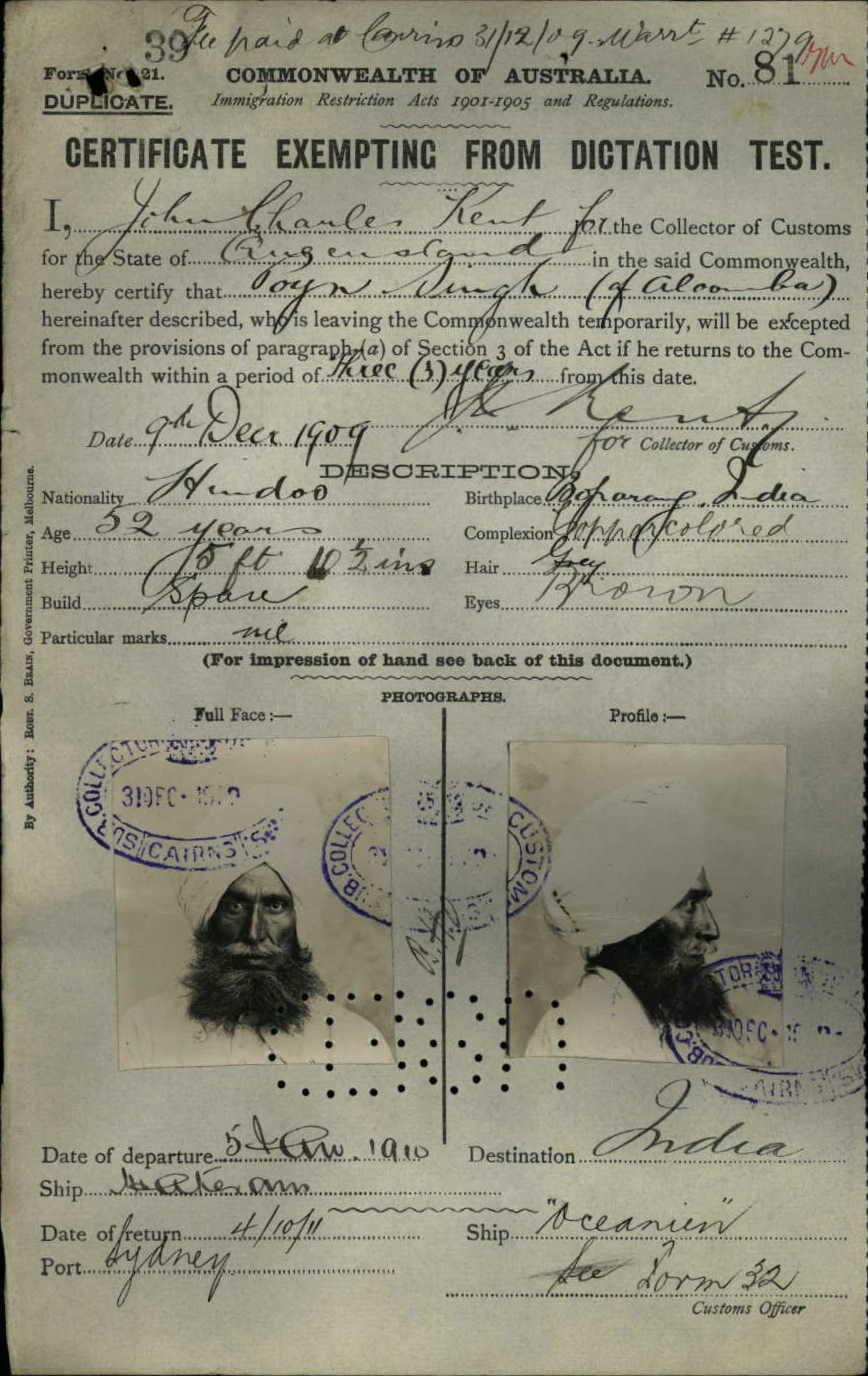 39 Fee paid at Cairns 31/12/09. Warrt # 1279
Form No. 21. COMMONWEALTH OF AUSTRALIA. No. 81
DUPLICATE. Immigration Restriction Acts 1901-1905 and Regulations.
CERTIFICATE EXEMPTING FROM DICTATION TEST.
I, John Charles Kent for the Collector of Customs
for the State of Queensland in the said Commonwealth,
hereby certify that Singh (of Aloomba)
hereinafter described, who is leaving the Commonwealth temporarily, will be excepted
from the provisions of paragraph (a) of Section 3 of the Act if he returns to the Com-
monwealth within a period of three (3) years from this date.
J C Kent
Date 9th Decr 1909 for Collector of Customs.
DESCRIPTION.
Nationality Hindoo Birthplace India
Age 52 years Complexion Copper colored
Height 5 ft 10 1/2 ins Hair Grey
Build Spare Eyes Brown
Particular marks nil
(For impression of hand see back of this document.)
PHOTOGRAPHS.
Full Face :— Profile :—
SUB. COLLECTOR CUSTOMS
31 DEC. 1909
CAIRNS
Date of departure 5 Jan. 1910 Destination India
Ship Mataram
Date of return 4/10/11 Ship "Oceanien"
Port Sydney See Form 32
Customs Officer
By Authority: ROBT. S. BRAIN, Government Printer, Melbourne.